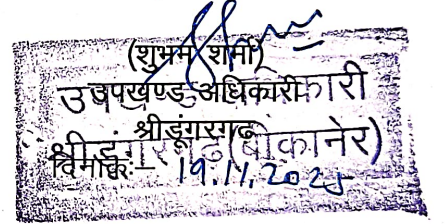 (शुभम शर्मा)
उपखण्ड अधिकारी
श्रीडूंगरगढ़
उपखण्ड अधिकारी
श्रीडूंगरगढ़ (बीकानेर)
दिनांक:- 19.11.2025